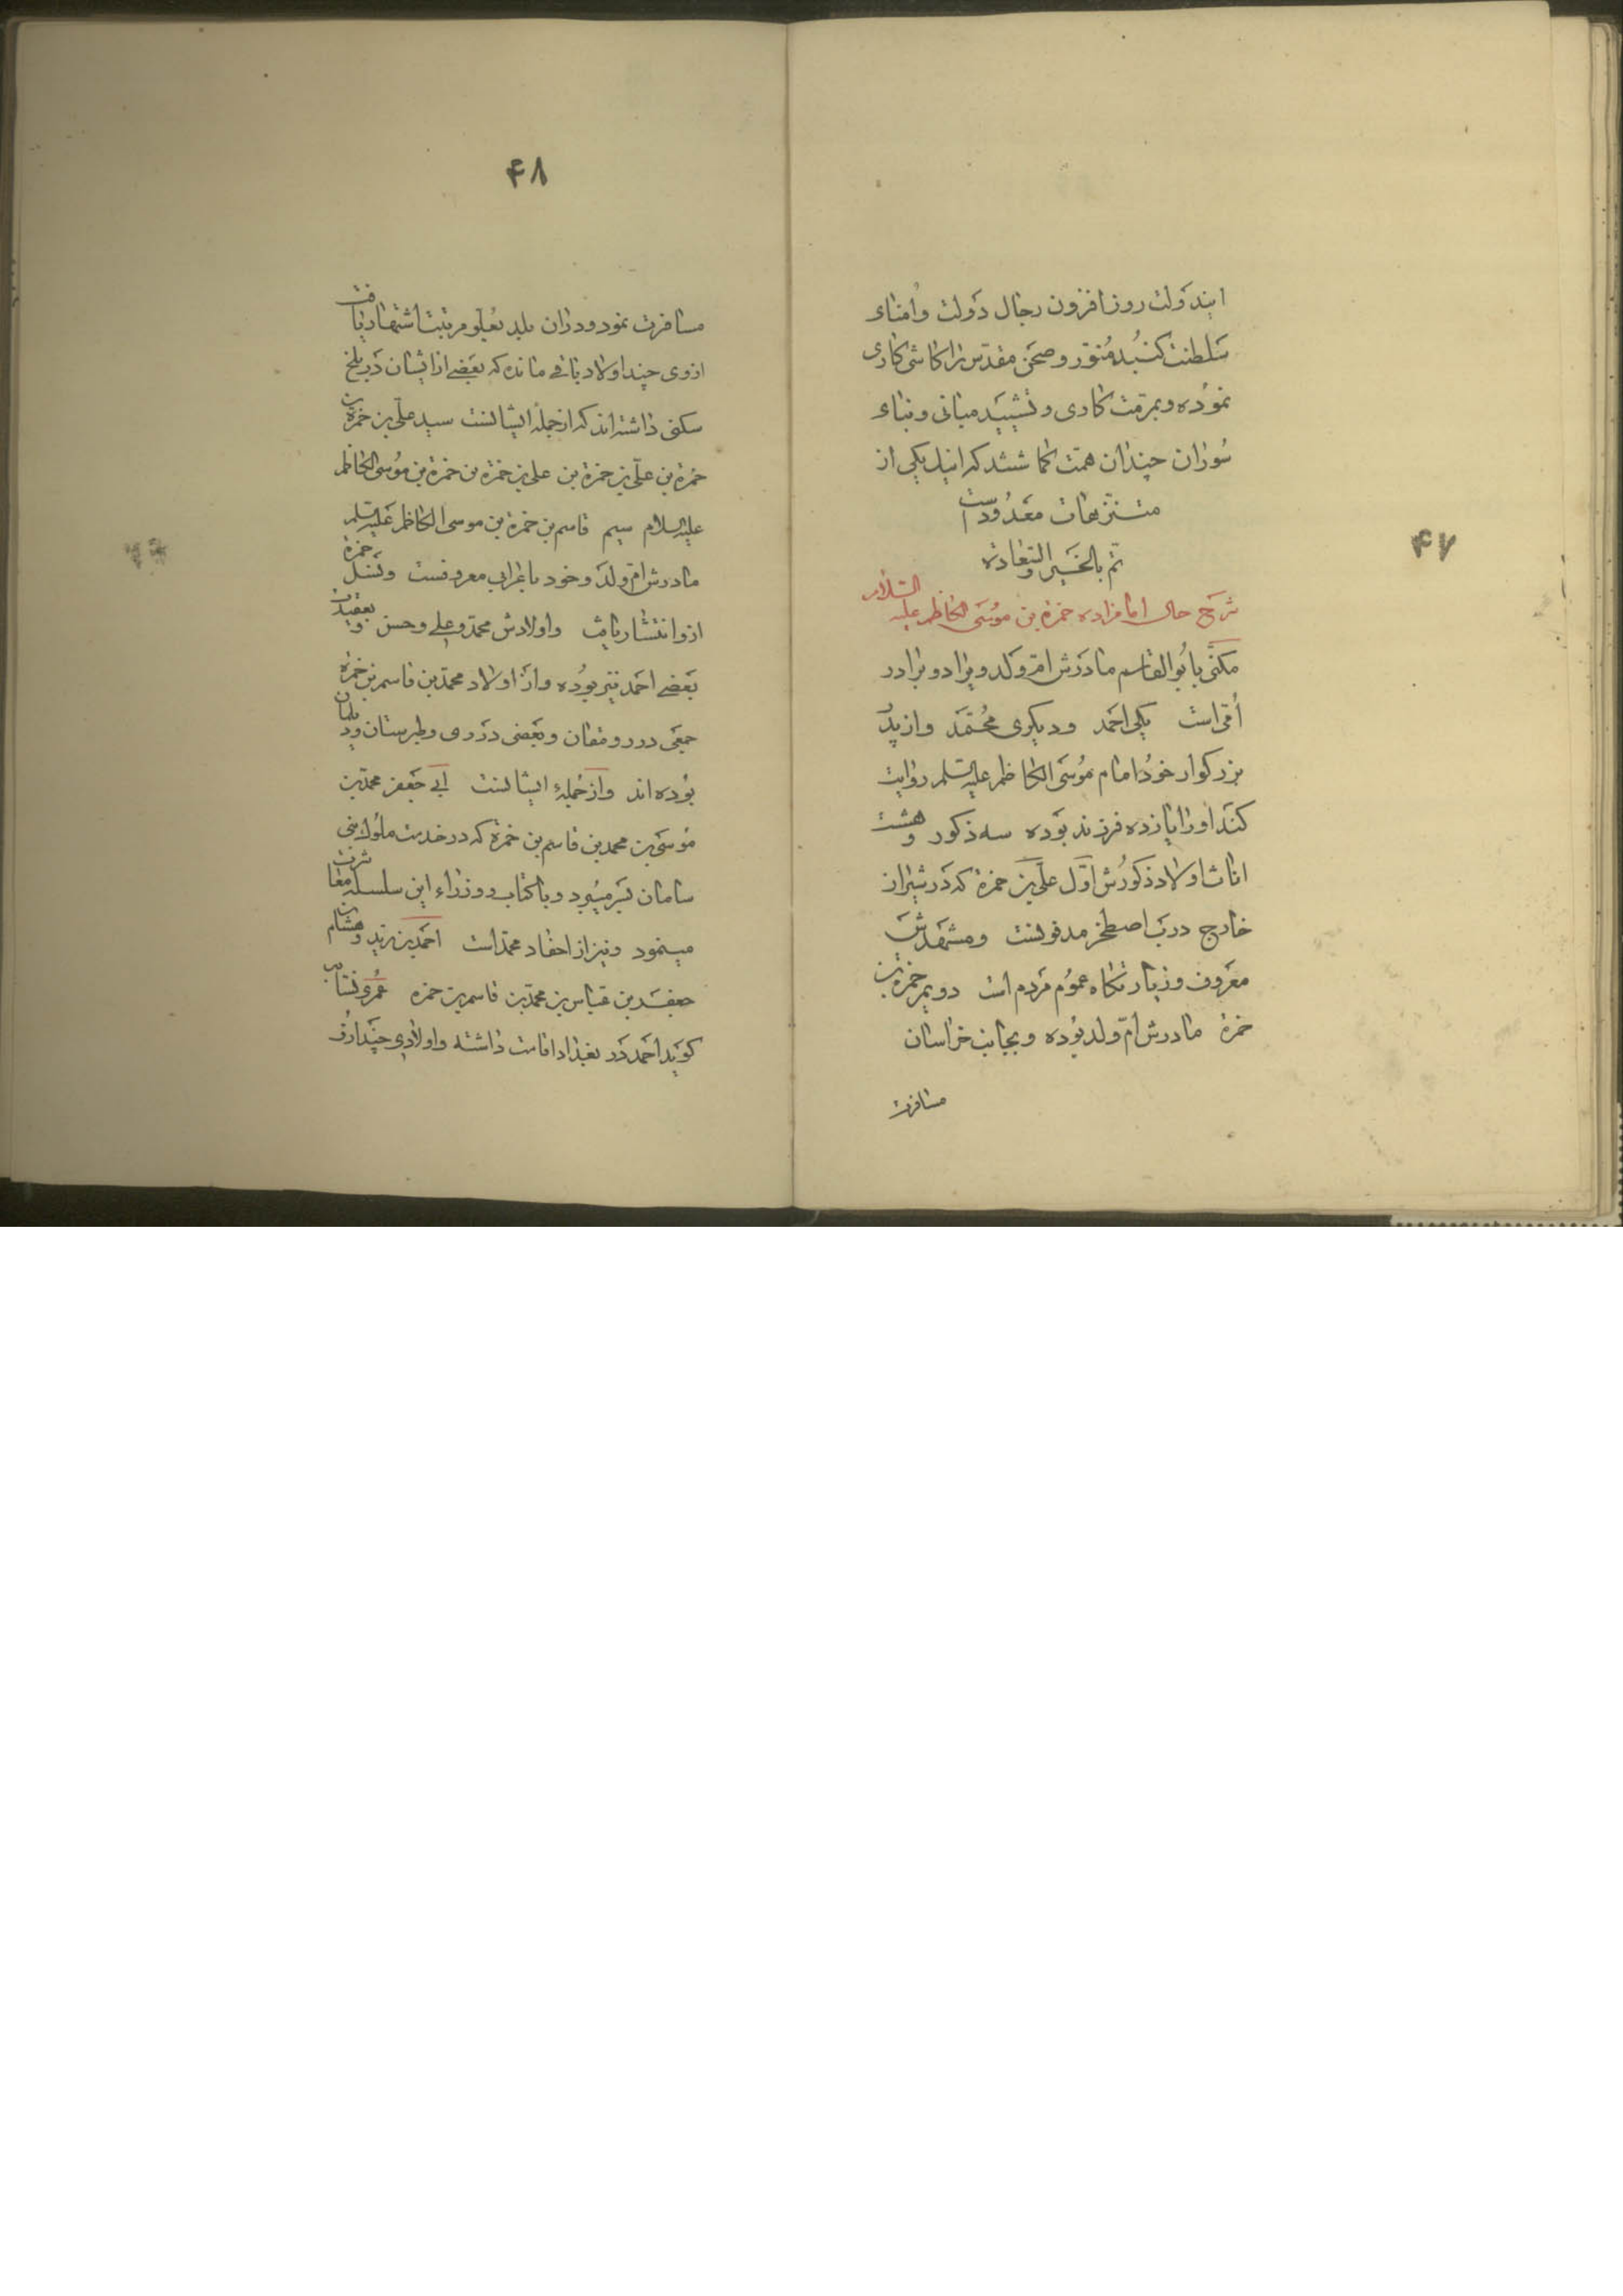 ۴۷
ایندولت روزافزون رجال دولت وامناء
سلطنت کنبد منور وصحن مقدس را کاشی کاری
نموده وبمرمت کاری و تشیید مبانی وبناء
سوران چندان همت کماشتند که اینک یکی از
متنزهات معدود است
تم بالخیر والسعادة
شرح حال امامزاده حمزة بن موسی الکاظم علیه السلام
مکنی بابوالقاسم مادرش ام ولد ویرا دو برادر
امی است یکی احمد ودیکری محمد واز پدر
بزرکوار خود امام موسی الکاظم علیه السلم روایت
کند اورا یازده فرزند بوده سه ذکور و هشت
اناث اولاد ذکورش اول علی بن حمزة که در شیراز
خارج درب اصطخر مدفونست ومشهدش
معروف وزیارتکاه عموم مردم است دویم حمزة بن
حمزة مادرش ام ولد بوده وبجانب خراسان
مسافرت
۴۸
مسافرت نمود ودران بلد بعلو مرتبت اشتهار یافت
ازوی چند اولاد باقی مانده که بعضی از ایشان در بلخ
سکنی داشته اند که از جملهٔ ایشانست سید علی بن حمزة بن
حمزة بن علی بن حمزة بن علی بن حمزة بن حمزة بن موسی الکاظم
علیه السلام سیم قاسم بن حمزة بن موسی الکاظم علیه السلم
مادرش ام ولد وخود باعرابی معروفست ونسل حمزة
ازو انتشار یافت واولادش محمد وعلی وحسن و بعقیدت
بعضی احمد نیز بوده واز اولاد محمد بن قاسم بن حمزة
جمعی در رومقان وبعضی در ری وطبرستان ودیلمان
بوده اند واز جملهٔ ایشانست ابی جعفر محمد بن
موسی بن محمد بن قاسم بن حمزة که در خدمت ملوک بنی
سامان بسر میبرد وبا کتاب ووزراء این سلسله معاشرت
مینمود ونیز از احفاد محمد است احمد بن زید وهشام بن
جعفر بن عباس بن محمد بن قاسم بن حمزه عمری نساب
کوید احمد در بغداد اقامت داشته واولادی چند ازو